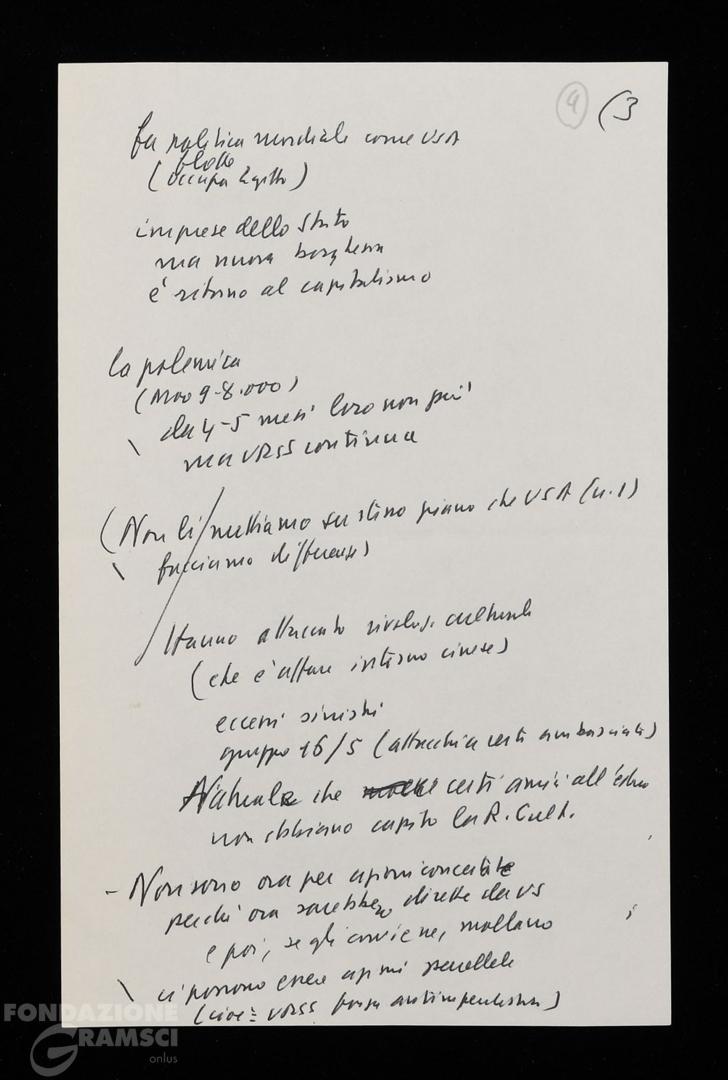 4 (3
fa politica mondiale come USA
(occupa Egitto)
imprese dello Stato
ma nuova borghesia
è ritorno al capitalismo
la polemica
(Mao 9-8.000)
\ da 4-5 mesi loro non più
ma URSS continua
(Non li mettiamo su stesso piano che USA (n.1)
\ facciamo differenze)
Hanno attaccato rivoluz. culturale
(che è affare interno cinese)
eccessi sinistri
gruppo 16/5 (attacchi a certi ambasciate)
Naturale che certi amici all'estero
non abbiano capito la R. Cult.
- Non sono ora per azioni concertate
perché ora sarebbero dirette da US
e poi, se gli conviene, mollano
\ ci possono essere azioni parallele
(cioè = URSS forza antimperialista)
FONDAZIONE
GRAMSCI
onlus